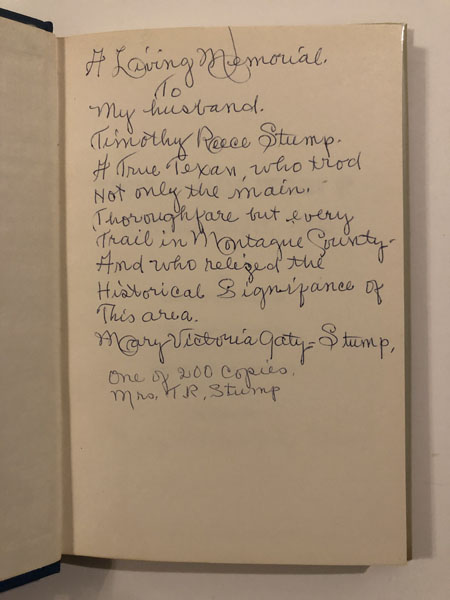 A Living Memorial.
To
My husband.
Timothy Reece Stump.
A True Texan, who trod
Not only the main.
Thoroughfare but every
Trail in Montague County-
And who relized the
Historical Signifance of
This area.
Mary Victoria Gaty-Stump,
One of 200 Copies.
Mrs. T.R. Stump